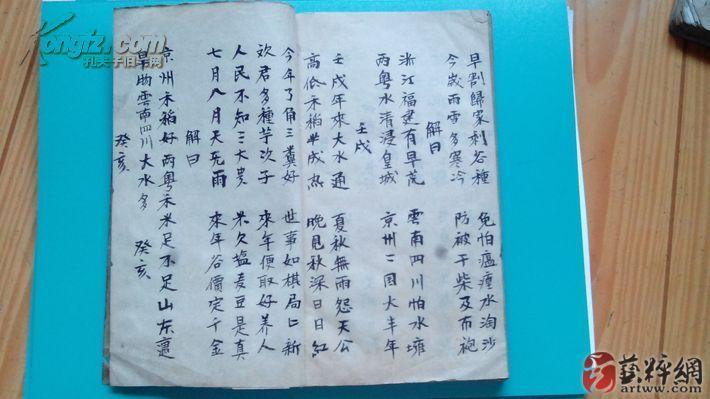 早割歸家利各種 免怕瘟瘴水淘沙
今歲雨雪多寒冷 防被干柴及布袍
解曰
浙江福建有旱荒 雲南四川怕水壅
两粤水清浸皇城 京州二囯大丰年
壬戌
壬戌年來大水通 夏秋無雨怨天公
高低禾稻半成热 晚見秋深日日紅
今年了角三糞好 世事如棋局亡新
欢君多種芋次子 來年便取好养人
人民不知三大贵 米欠塩麦豆是真
七月八月天死雨 來年谷價定千金
解曰
京州禾稻好两粤禾米足不足山东
雲南四川大水多 癸亥
癸亥
Kongfz.com
孔夫子旧书网
藝粹網
artww.com